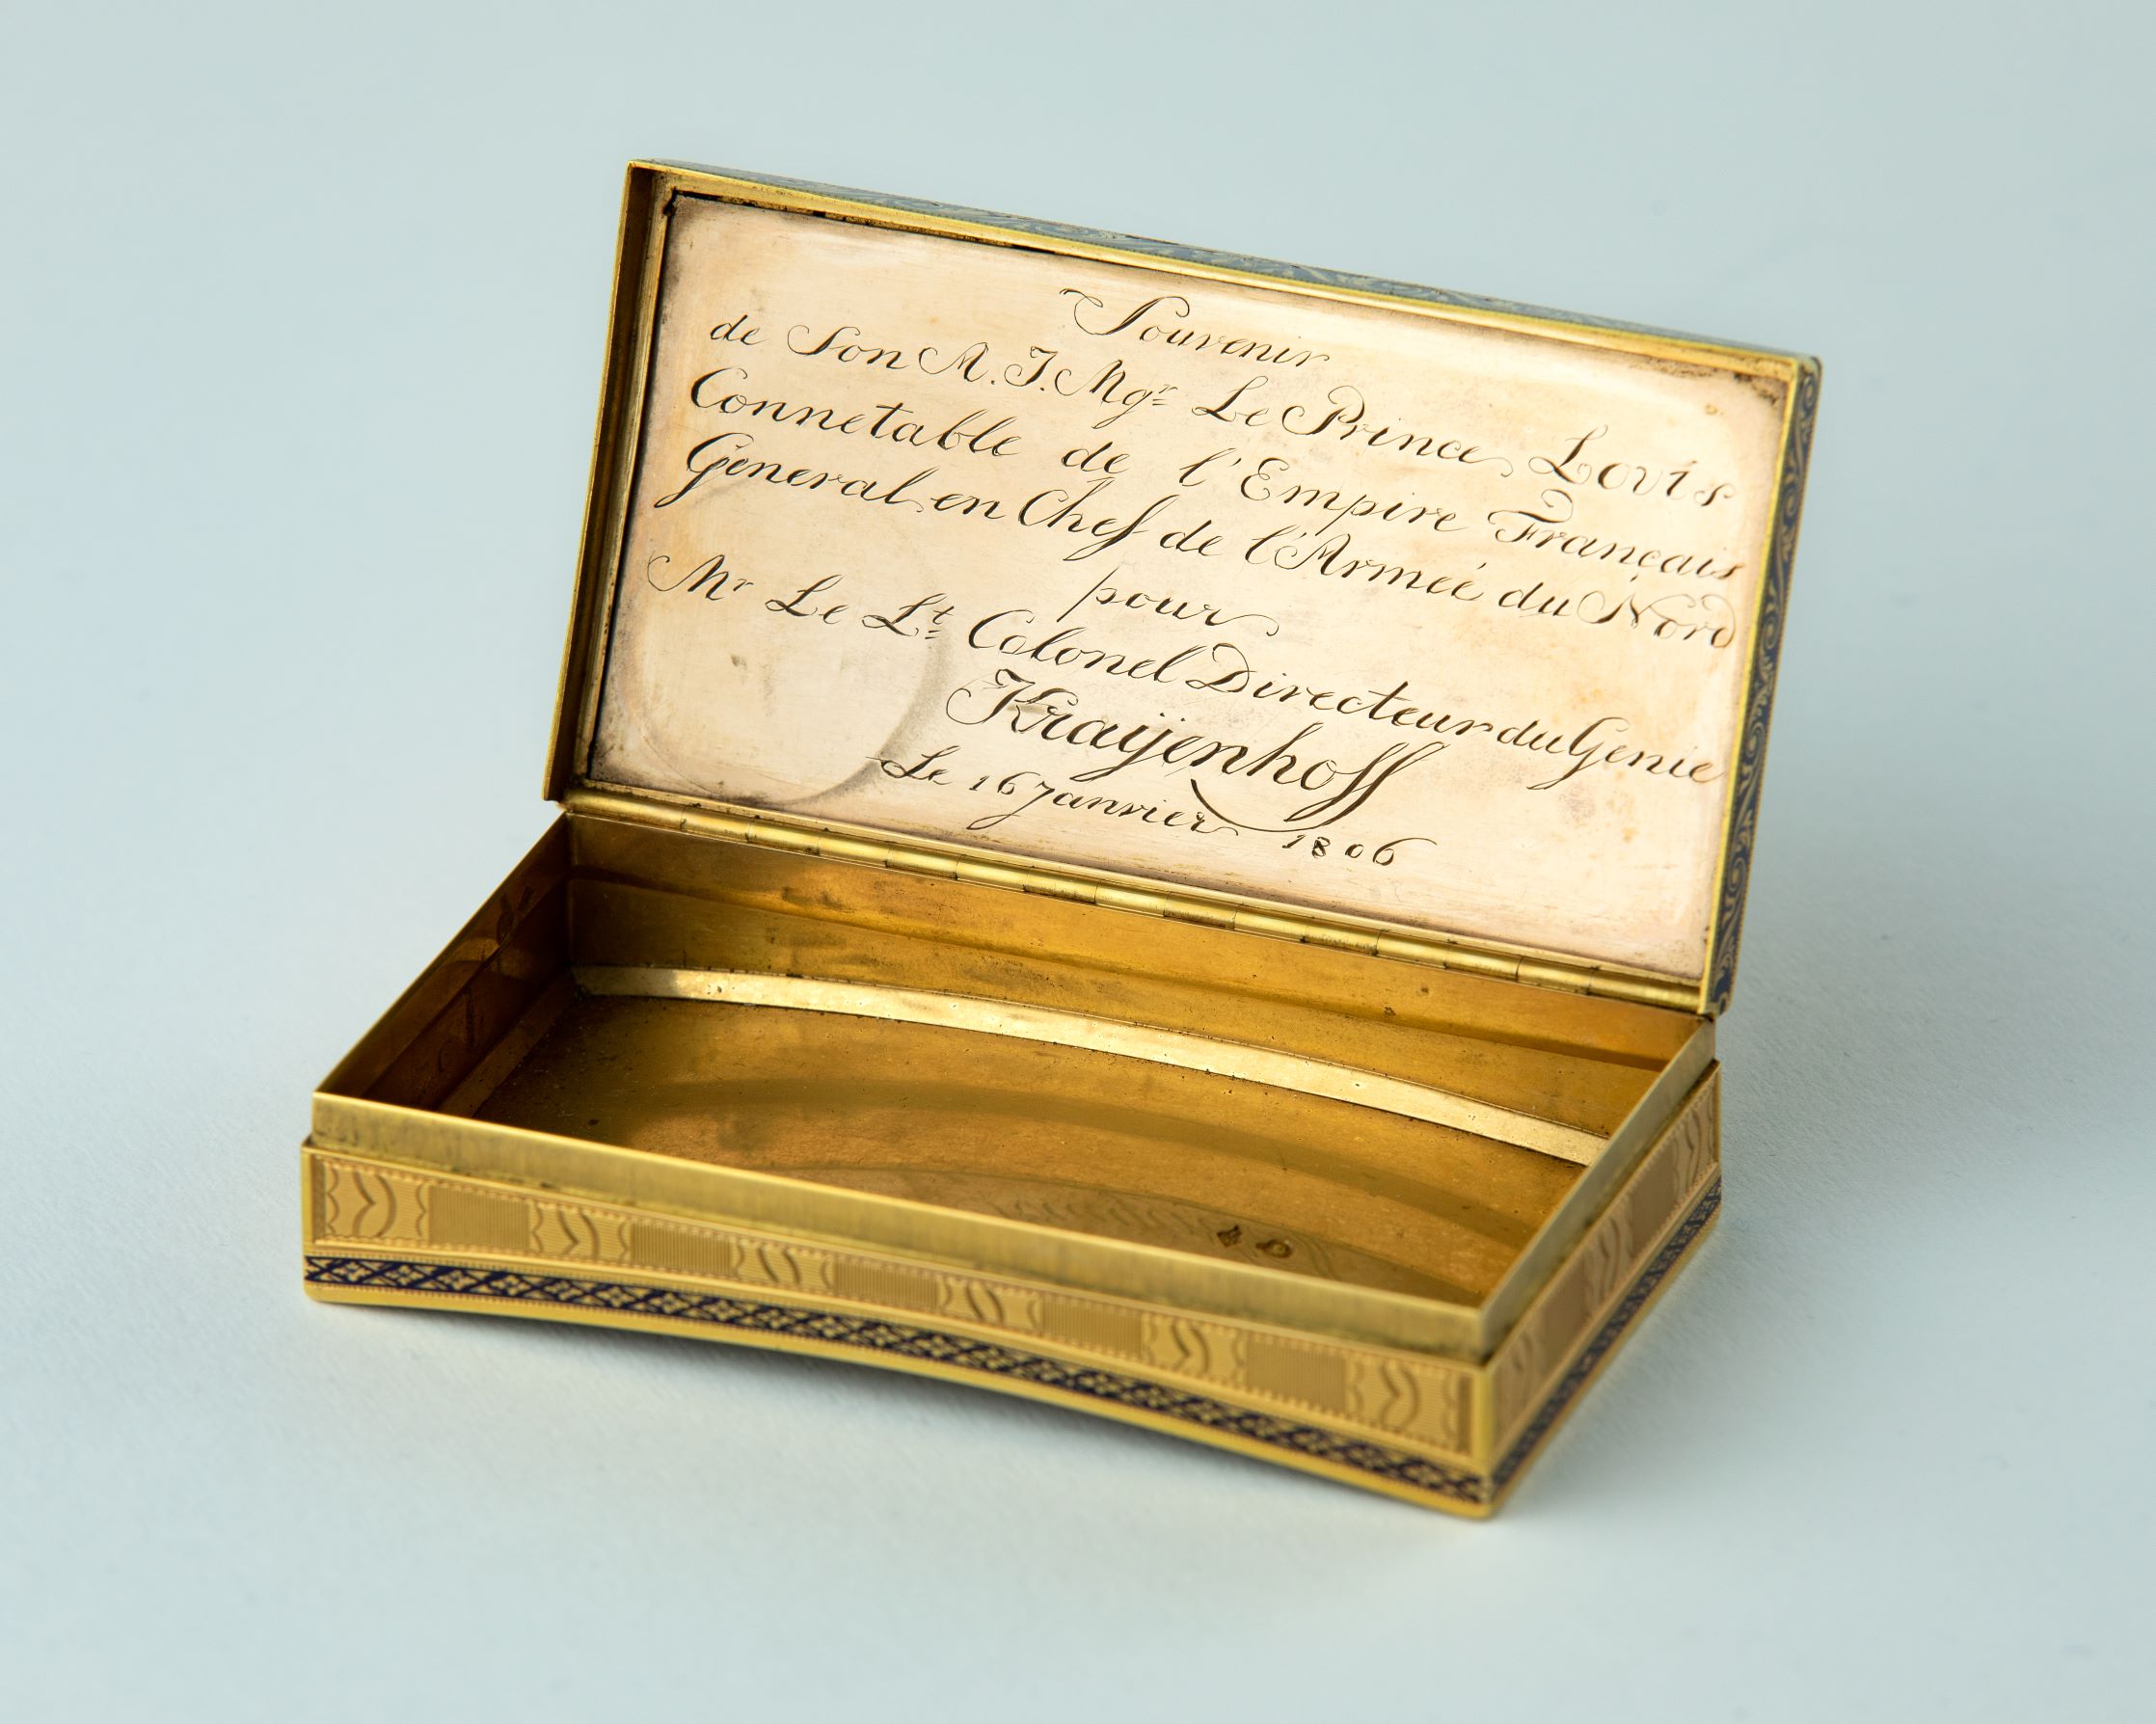 Souvenir
de Son A. I. Mgr Le Prince Louis
Connetable de l'Empire Français
General en Chef de l'Armée du Nord
pour
Mr Le Lt Colonel Directeur du Genie
Kraijenhoff
Le 16 Janvier 1806